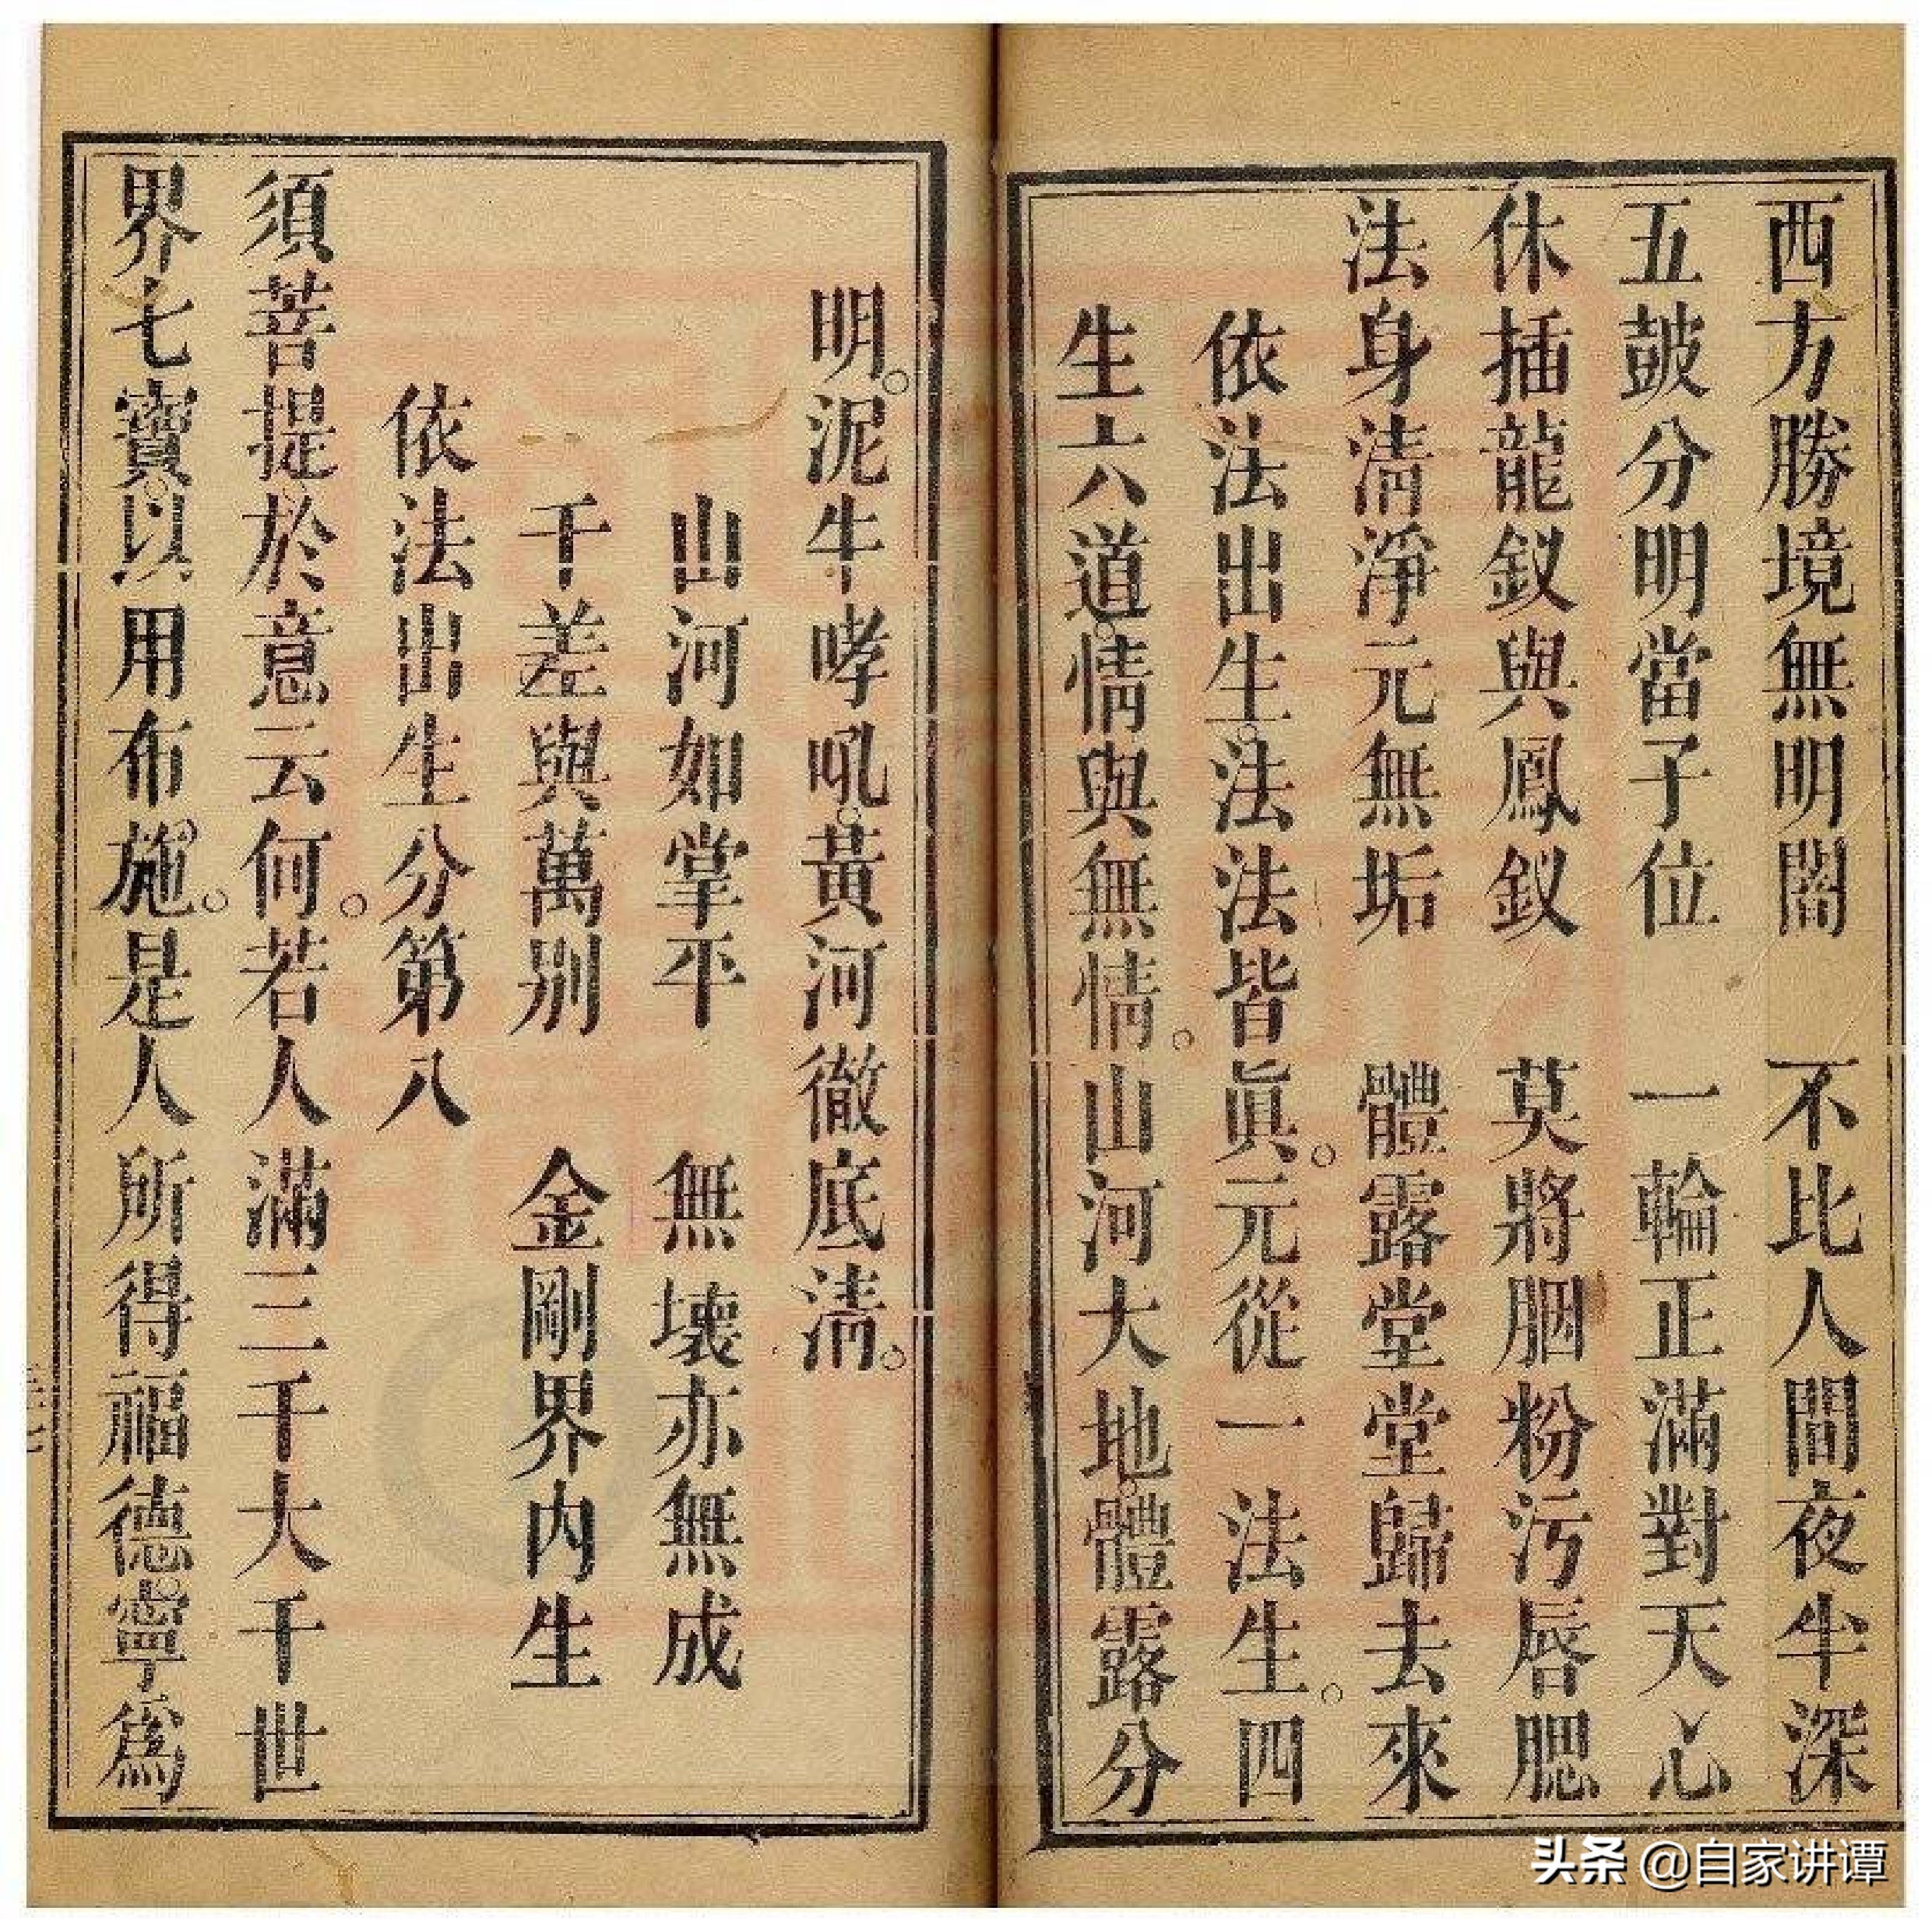 西方勝境無明闇　不比人間夜半深
五鼓分明當子位　一輪正滿對天心
休插龍釵與鳳釵　莫將胭粉污唇腮
法身清淨元無垢　體露堂堂歸去來
依法出生。法法皆眞。元從一法生。四
生六道。情與無情。山河大地。體露分
明。泥牛哮吼。黃河徹底清。
山河如掌平　無壞亦無成
千差與萬别　金剛界內生
依法出生分第八
須菩提於意云何。若人滿三千大千世
界七寶。以用布施。是人所得福德。寧爲
头条 @自家讲谭